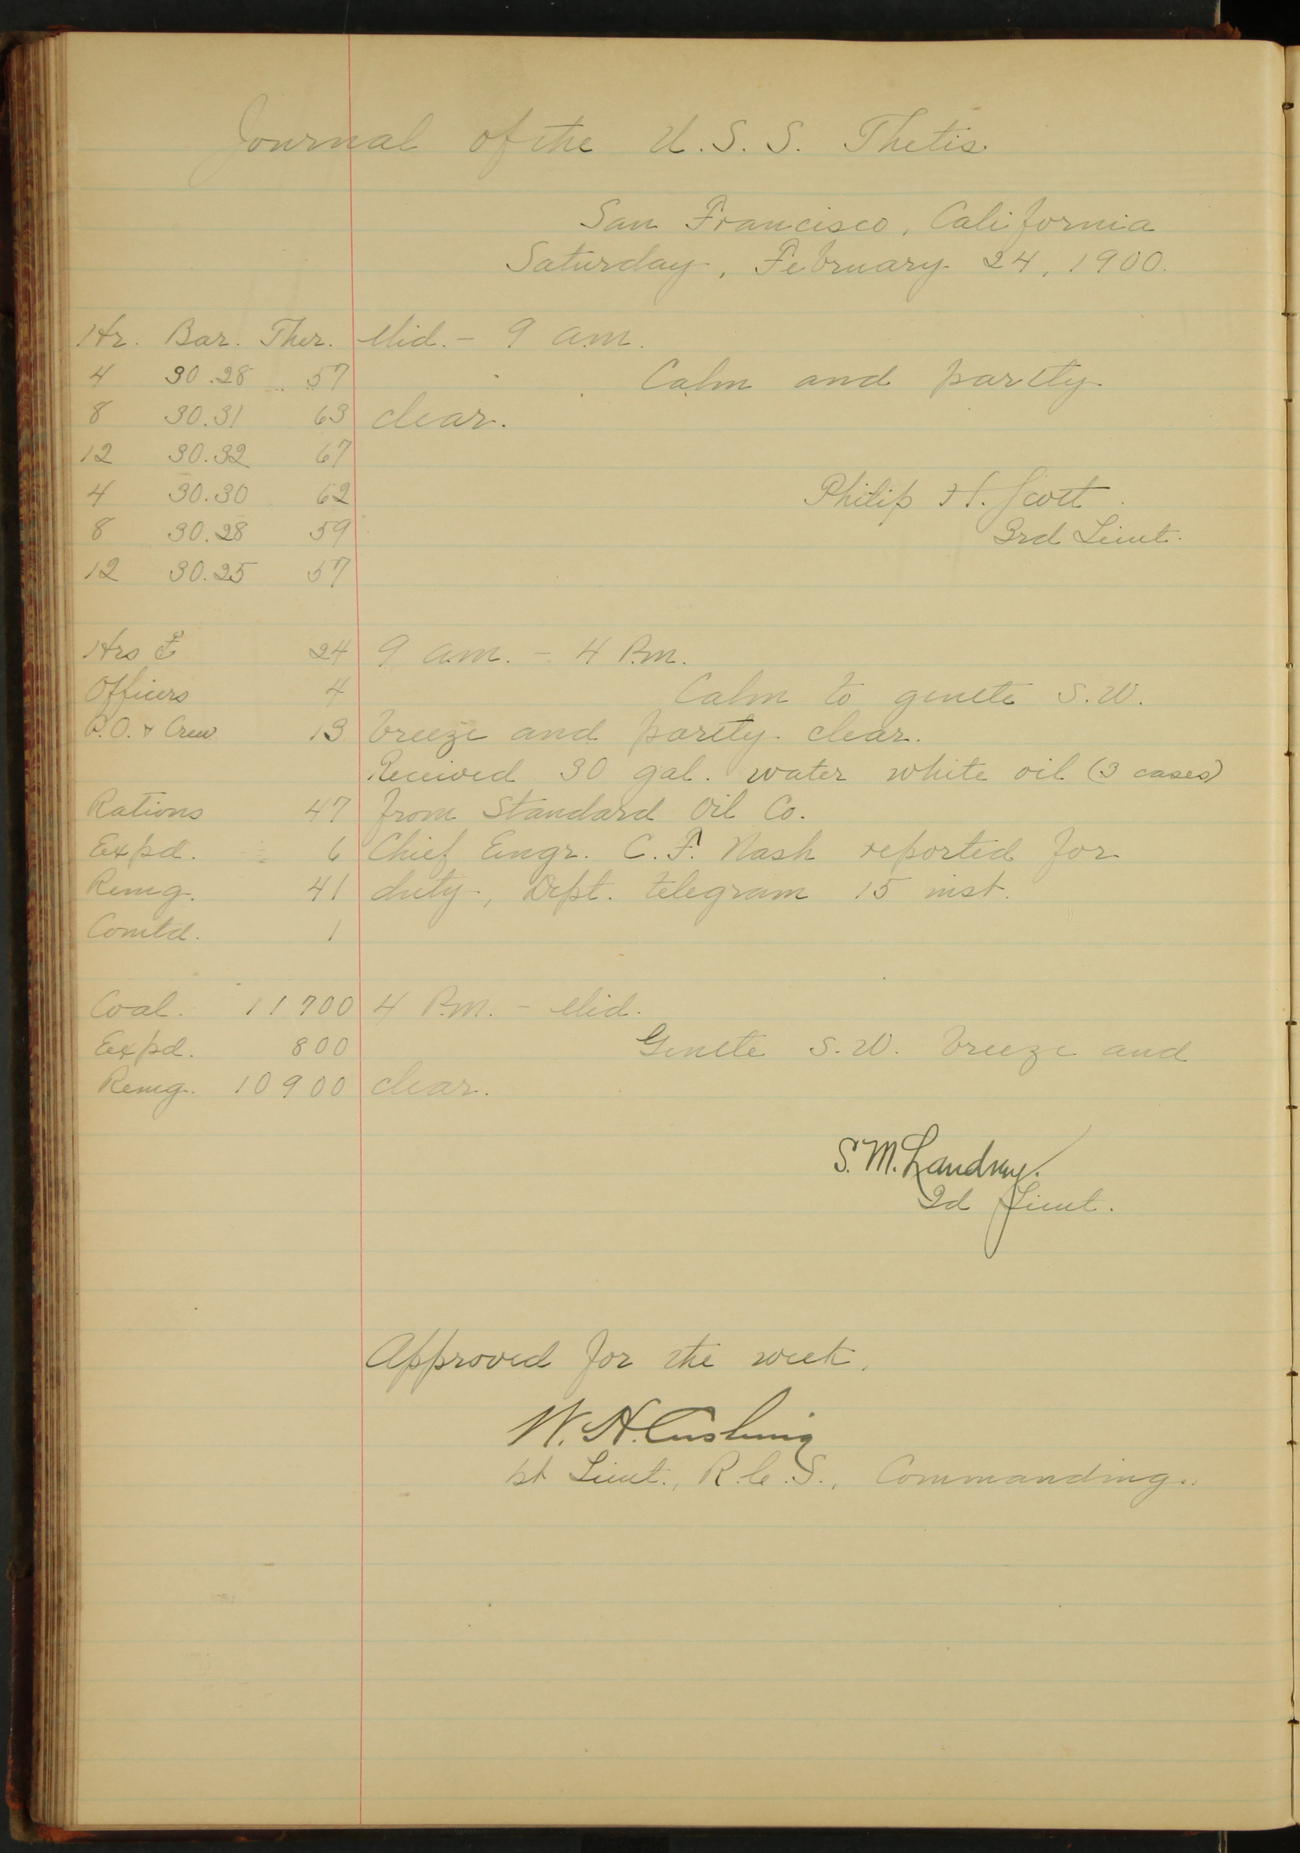 Journal of the U.S.S. Thetis.
San Francisco, California
Saturday, February 24, 1900.
Hr. Bar. Ther. Mid. - 9 a.m.
4 30.28 57 Calm and partly
8 30.31 63 clear.
12 30.32 67
4 30.30 62 Philip H. Scott
8 30.28 59 3rd Lieut.
12 30.25 57
Hrs 24 9 a.m. - 4 P.m.
Officers 4 Calm to gentle S.W.
P.O. & Crew 13 breeze and partly clear.
Received 30 gal. water white oil (3 cases)
Rations 47 from Standard Oil Co.
Expd. 6 Chief Engr. C. F. Nash reported for
Remg. 41 duty, Dept. telegram 15 inst.
Comtd. 1
Coal. 11700 4 P.m. - Mid.
Expd. 800 Gentle S.W. breeze and
Remg. 10900 clear.
S. M. Landrey.
2d Lieut.
Approved for the week,
W. H. Cushing
1st Lieut., R.C.S., Commanding.